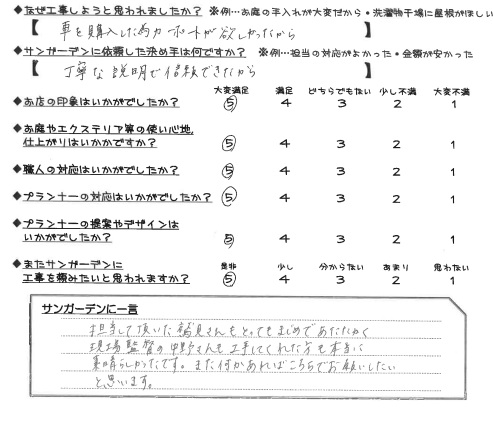 ◆なぜ工事しようと思われましたか？ ※例…お庭の手入れが大変だから・洗濯物干場に屋根がほしい
【 車を購入した為カーポートが欲しかったから 】
◆サンガーデンに依頼した決め手は何ですか？ ※例…担当の対応がよかった・金額が安かった
【 丁寧な説明で信頼できたから 】
大変満足 満足 どちらでもない 少し不満 大変不満
◆お店の印象はいかがでしたか？ 5 4 3 2 1
◆お庭やエクステリア等の使い心地、
仕上がりはいかがですか？ 5 4 3 2 1
◆職人の対応はいかがでしたか？ 5 4 3 2 1
◆プランナーの対応はいかがでしたか？ 5 4 3 2 1
◆プランナーの提案やデザインは
いかがでしたか？ 5 4 3 2 1
◆またサンガーデンに 是非 少し 分からない あまり 思わない
工事を頼みたいと思われますか？ 5 4 3 2 1
サンガーデンに一言
担当して頂いた さんもとってもまじめであたたかく
現場監督の中野さんも工事してくれた方も本当に
素晴らしかったです。また何かあればこちらでお願いしたい
と思います。